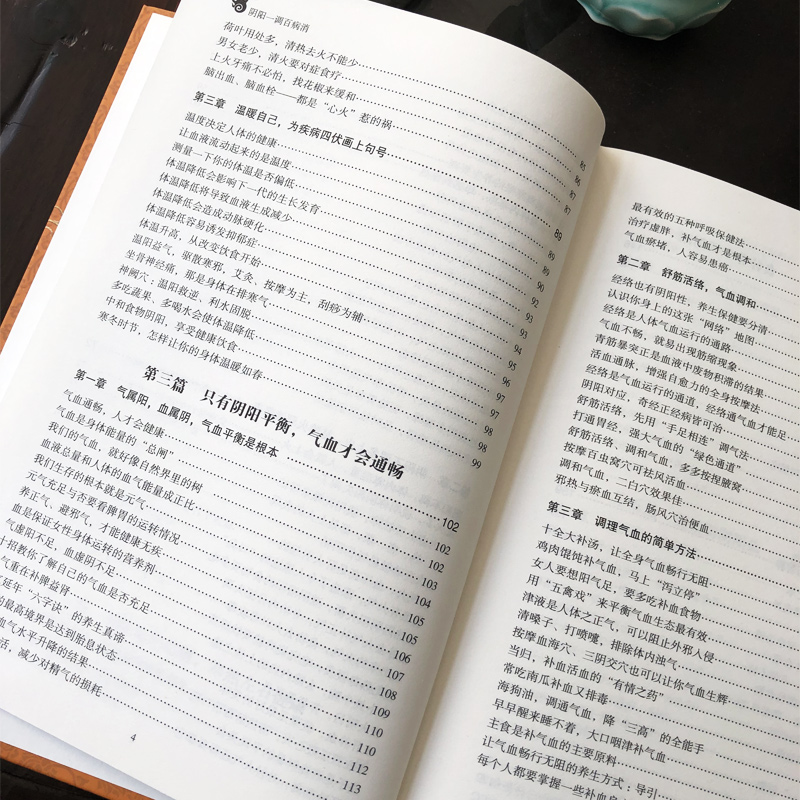 阴阳一调百病消
荷叶用处多，清热去火不能少
男女老少，清火要对症食疗 85
上火牙痛不必怕，找花椒来缓和 86
脑出血、脑血栓——都是“心火”惹的祸 87
第三章 温暖自己，为疾病四伏画上句号 89
温度决定人体的健康
让血液流动起来的是温度
测量一下你的体温是否偏低
体温降低会影响下一代的生长发育
体温降低将导致血液生成减少
体温降低会造成动脉硬化
体温降低容易诱发抑郁症
体温升高，从改变饮食开始
温阳益气，驱散寒邪，艾灸、按摩为主，刮痧为辅
坐骨神经痛，那是身体在排寒气
神阙穴：温阳救逆，利水固脱
多吃蔬果、多喝水会使体温降低
中和食物阴阳，享受健康饮食 98
寒冬时节，怎样让你的身体温暖如春 99
第三篇 只有阴阳平衡，气血才会通畅
第一章 气属阳，血属阴，气血平衡是根本 102
气血通畅，人才会健康
气血是身体能量的“总闸”
我们的气血，就好像自然界里的树
血液总量和人体的血气能量成正比
我们生存的根本就是元气
元气充足与否要看脾胃的运转情况
养正气、避邪气，才能健康无疾
血是保证女性身体运转的营养剂
气虚阳不足、血虚阴不足
十招教你了解自己的气血是否充足
气重在补脾益肾
延年“六字诀”的养生真谛
的最高境界是达到胎息状态
血气水平升降的结果 112
活，减少对精气的损耗 113
4
最有效的五种呼吸保健法
治疗虚胖，补气血才是根本
气血瘀堵，人容易患癌
第二章 舒筋活络，气血调和
经络也有阴阳性，养生保健要分清
认识你身上的这张“网络”地图
经络是人体气血运行的通路
气血不畅，就易出现筋缩现象
青筋暴突正是血液中废物积滞的结果
活血通脉，增强自愈力的全身按摩法
经络是气血运行的通道，经络通气血才能足
阴阳对应，奇经正经病皆可治
舒筋活络，先用“手足相连”调气法
打通胃经，强大气血的“绿色通道”
舒筋活络、调和气血，多多按捏腋窝
按摩百虫窝穴可祛风活血
调和气血，二白穴效果佳
邪热与瘀血互结，肠风穴治便血
第三章 调理气血的简单方法
十全大补汤，让全身气血畅行无阻
鸡肉馄饨补气血，马上“泻立停”
女人要想阳气足，要多吃补血食物
用“五禽戏”来平衡气血生态最有效
津液是人体之正气，可以阻止外邪入侵
清嗓子、打喷嚏，排除体内浊气
按摩血海穴、三阴交穴也可以让你气血生辉
当归，补血活血的“有情之药”
常吃南瓜补血又排毒
海狗油，调通气血，降“三高”的全能手
早早醒来睡不着，大口咽津补气血
主食是补气血的主要原料
让气血畅行无阻的养生方式：导引
每个人都要掌握一些补血